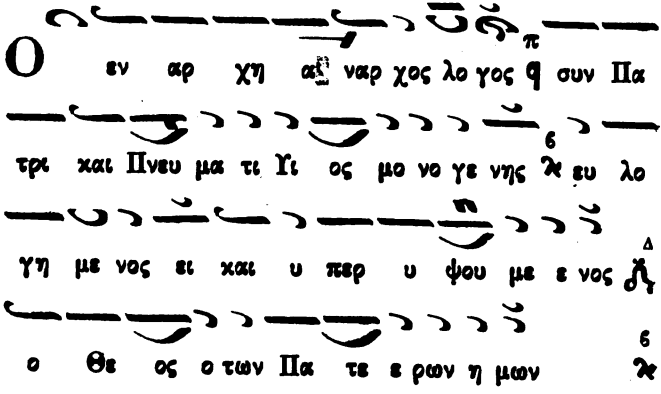 Ο εν αρ χη α ναρ χος λο γος π q συν Πα
τρι και Πνευ μα τι Υι ος μο νο γε νης ϐ ευ λο
γη με νος ει και υ περ υ ψου με ε νος Δ
ο Θε ος ο των Πα τε ε ρων η μων ϐ